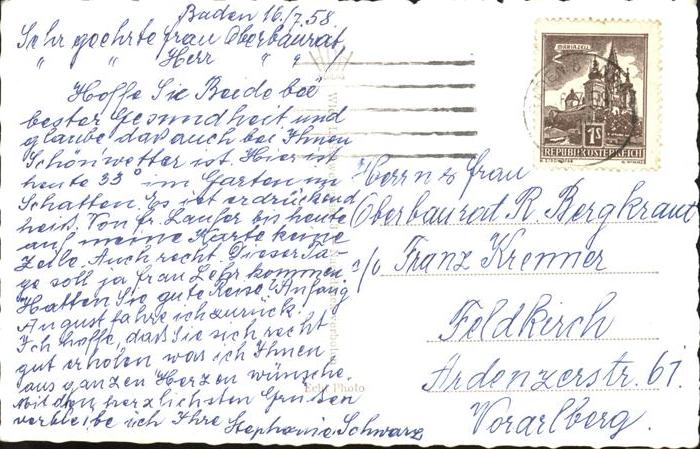 Baden 16./7. 58.
Sehr geehrte Frau Oberbaurat
" " Herr " "!
Hoffe Sie Beide bei
bester Gesundheit und
glaube das auch bei Ihnen
Schönwetter ist. Hier ist
heute 33° im Garten im
Schatten. Es ist erdrückend
heiß. Von Fr. bis heute
auf meine Karte keine
Zeile. Auch recht. Dieser Ta-
ge soll ja Frau Lehr kommen.
Hatten Sie gute Reise? Anfang
August fahre ich zurück.
Ich hoffe, daß Sie sich recht
gut erholen was ich Ihnen
aus ganzen Herzen wünsche.
Mit den herzlichsten Grüßen
verbleibe ich Ihre Stephanie Schwarz
Echt Photo
MARIAZELL
1S
REPUBLIK ÖSTERREICH
Herrn & Frau
Oberbaurad R. Bergkraut
c/o Franz Krenner
Feldkirch
Ardenzerstr. 61.
Vorarlberg.